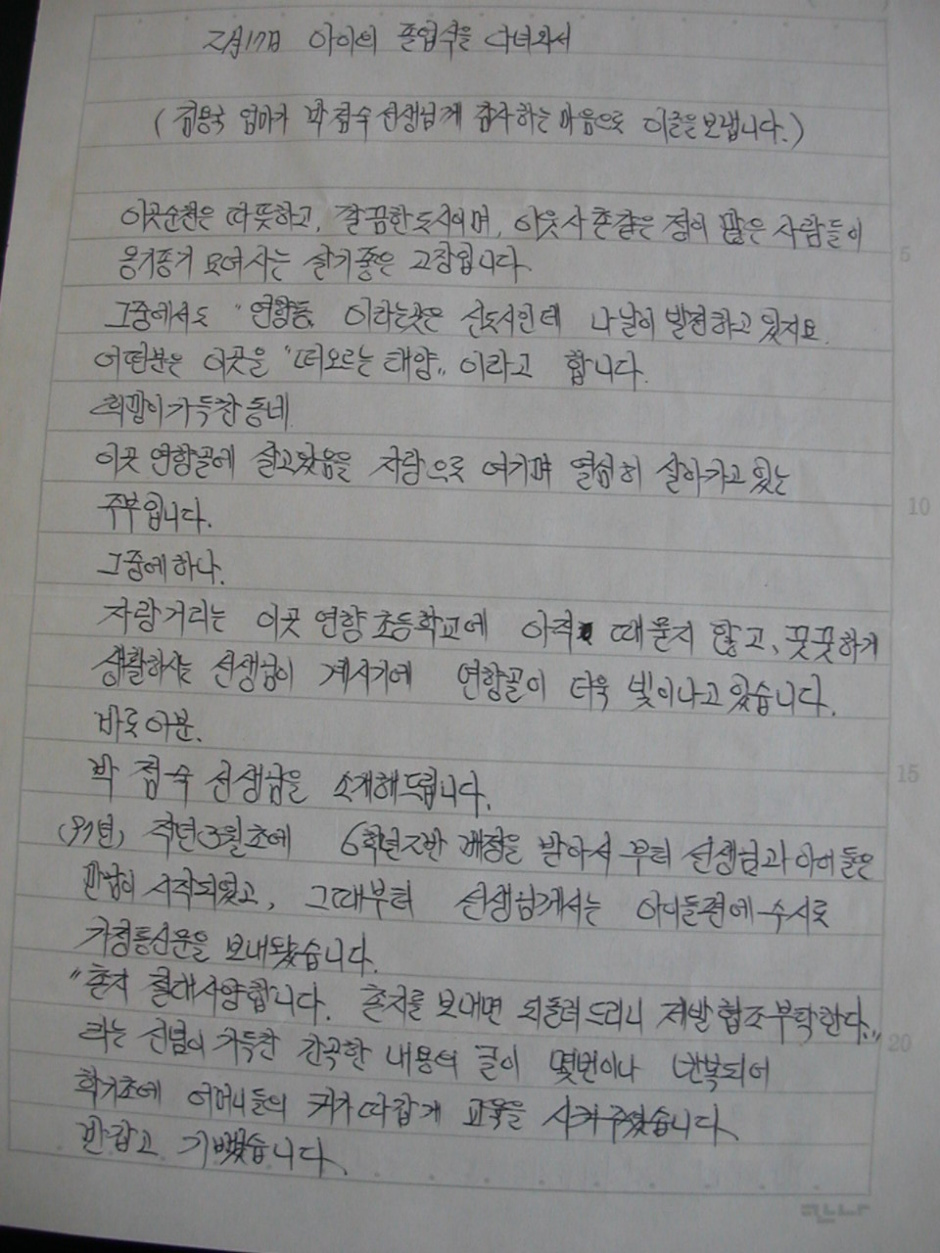 2월17일 아이의 졸업식을 다녀와서
(김용국 엄마가 박점숙 선생님께 감사하는 마음으로 이글을 보냅니다.)
이곳순천은 따뜻하고, 깔끔한도시이며, 이웃사촌같은 정이 많은 사람들이
옹기종기 모여사는 살기좋은 고장입니다.
그중에서도 "연향동" 이라는곳은 신도시인데 나날이 발전하고 있지요.
어떤분은 이곳을 "떠오르는 태양" 이라고 합니다.
희망이가득찬동네
이곳 연향골에 살고있음을 자랑으로 여기며 열심히 살아가고 있는
주부입니다.
그중에하나.
자랑거리는 이곳 연향초등학교에 아직 때묻지 않고, 꿋꿋하게
생활하시는 선생님이 계시기에 연향골이 더욱 빛이나고 있습니다.
바로이분.
박 점숙 선생님을 소개해드립니다.
(97년) 작년3월초에 6학년2반 배정을 받아서 부터 선생님과 아이들은
만남이 시작되었고, 그때부터 선생님께서는 아이들편에 수시로
가정통신문을 보내왔습니다.
"촌지 절대사양합니다. 촌지를 보내면 되돌려드리니 제발협조부탁한다."
라는 신념이 가득찬 간곡한 내용의 글이 몇번이나 반복되어
학기초에 어머니들의 귀가 따갑게 교육을 시켜 주셨습니다.
반갑고 기뻤습니다.
5
10
15
20